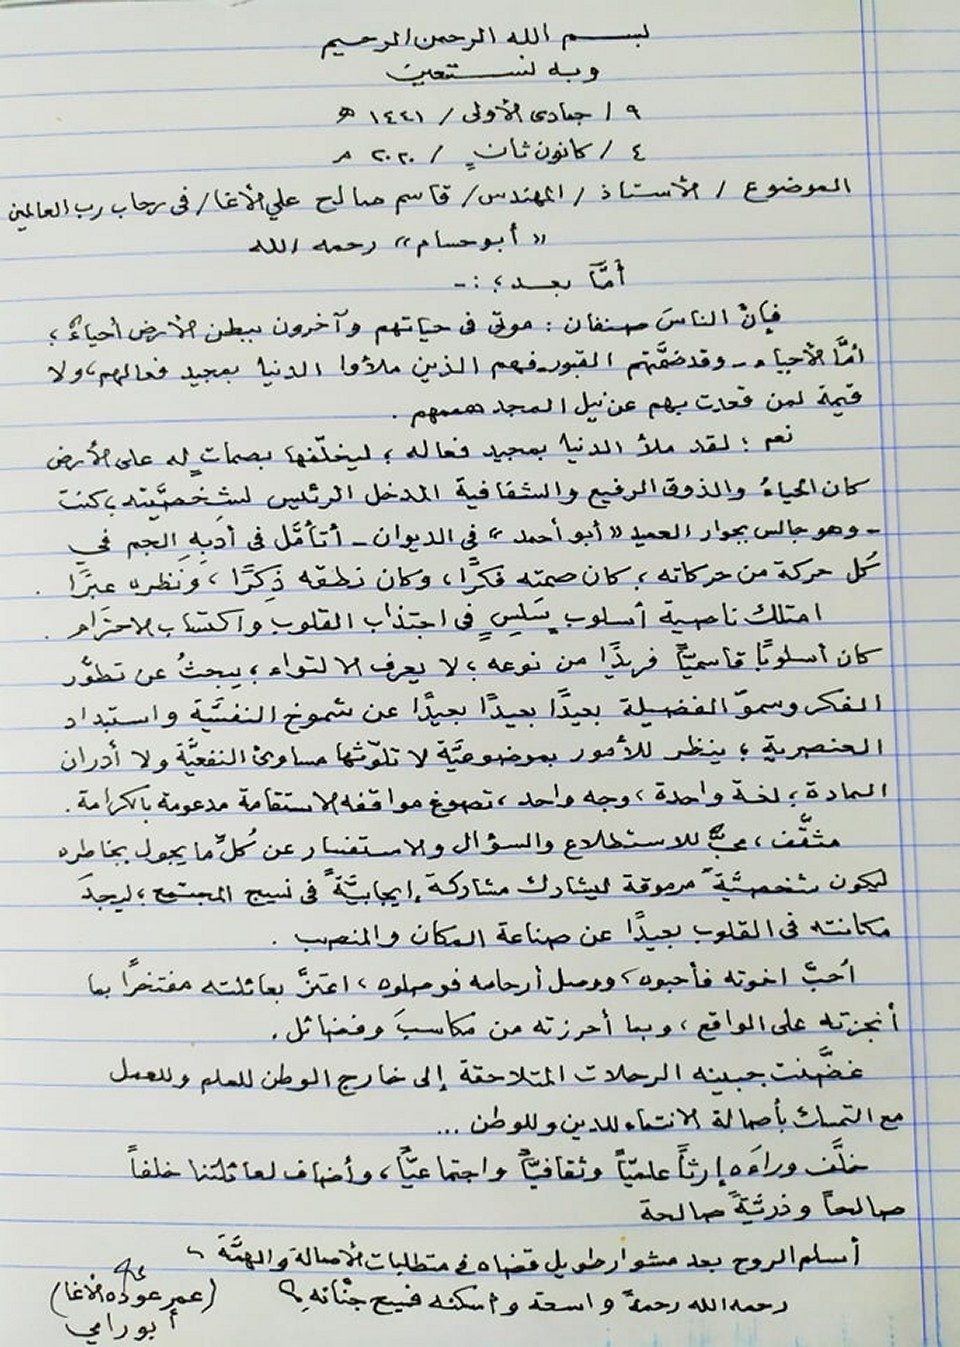 بسم الله الرحمن الرحيم
وبه نستعين
٩ / جمادى الأولى / ١٤٤١ هـ
٤ / كانون ثانٍ / ٢٠٢٠ م
الموضوع / الأستاذ / المهندس / قاسم صالح علي الأغا / في رحاب رب العالمين
"أبو حسام" رحمه الله
أمَّا بعد ؛ :-
فإنَّ الناسَ صنفان : موتى في حياتهم وآخرون ببطن الأرض أحياءٌ ؛
أمَّا الأحياء - وقد ضمَّتهم القبور - فهم الذين ملأوا الدنيا بمجيد فعالهم، ولا
قيمة لمن قعدت بهم عن نيل المجد هممهم .
نعم : لقد ملأ الدنيا بمجيد فعاله ؛ ليخلّفها بصماتٍ له على الأرض
كان الحياءُ والذوق الرفيع والشفافية المدخل الرئيس لشخصيَّته ؛ كنت
- وهو جالس بجوار العميد "أبو أحمد" في الديوان - أتأمَّل في أدبِهِ الجم في
كل حركة من حركاته ؛ كان صمته فكرًا ، وكان نطقه ذِكرًا ، ونظره عبرًا .
امتلك ناصية أسلوبٍ سَلِسٍ في اجتذاب القلوب واكتساب الاحترام .
كان أسلوبًا قاسميّاً فريدًا من نوعه ؛ لا يعرف الالتواء ؛ يبحثُ عن تطوُّر
الفكر وسموّ الفضيلة بعيدًا بعيدًا بعيدًا عن شموخ النفسيَّة واستبداد
العنصرية ؛ ينظر للأمور بموضوعيَّة لا تلوّثها مساوئ النفعيَّة ولا أدران
المادة ؛ لغة واحدة ، وجه واحد ، تصوغ مواقفه الاستقامة مدعومة بالكرامة .
مثقَّف ، محبٌّ للاستطلاع والسؤال والاستفسار عن كُلِّ ما يجول بخاطره
ليكون شخصيَّة مرموقة ليشارك مشاركة إيجابيَّةً في نسيج المجتمع ؛ ليجدَ
مكانته في القلوب بعيدًا عن صناعة المكان والمنصب .
أحبَّ اخوته فأحبوه ، ووصل أرحامه فوصلوه ، اعتزَّ بعائلته مفتخرًا بما
أنجزته على الواقع ، وبما أحرزته من مكاسبَ وفضائل .
غضَّنت جبينه الرحلات المتلاحقة إلى خارج الوطن للعلم وللعمل
مع التمسك بأصالة الانتماء للدين وللوطن ...
خلَّف وراءَه إرثاً علميّاً وثقافيّاً واجتماعيّاً ، وأضاف لعائلتنا خلفاً
صالحاً وذريَّةً صالحة
أسلم الروح بعد مشوار طويل قضاه في متطلبات الأصالة والهمَّة ،
رحمه الله رحمةً واسعة وأسكنه فسيح جنَّاتهِ
(عمر عوده الأغا)
أبو رامي